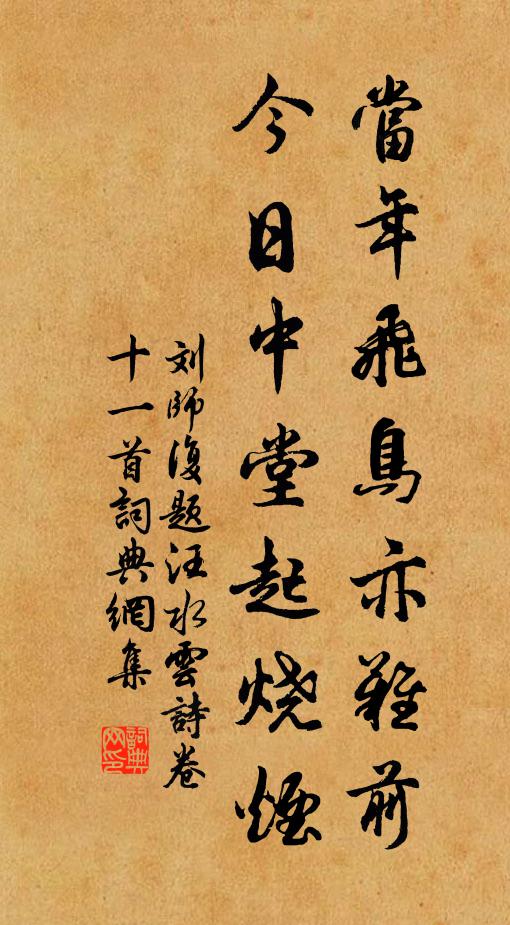 當年飛鳥亦難前
今日中堂起烧煙
刘師復題汪水雲詩卷
十一首詞典網集
詞典网印